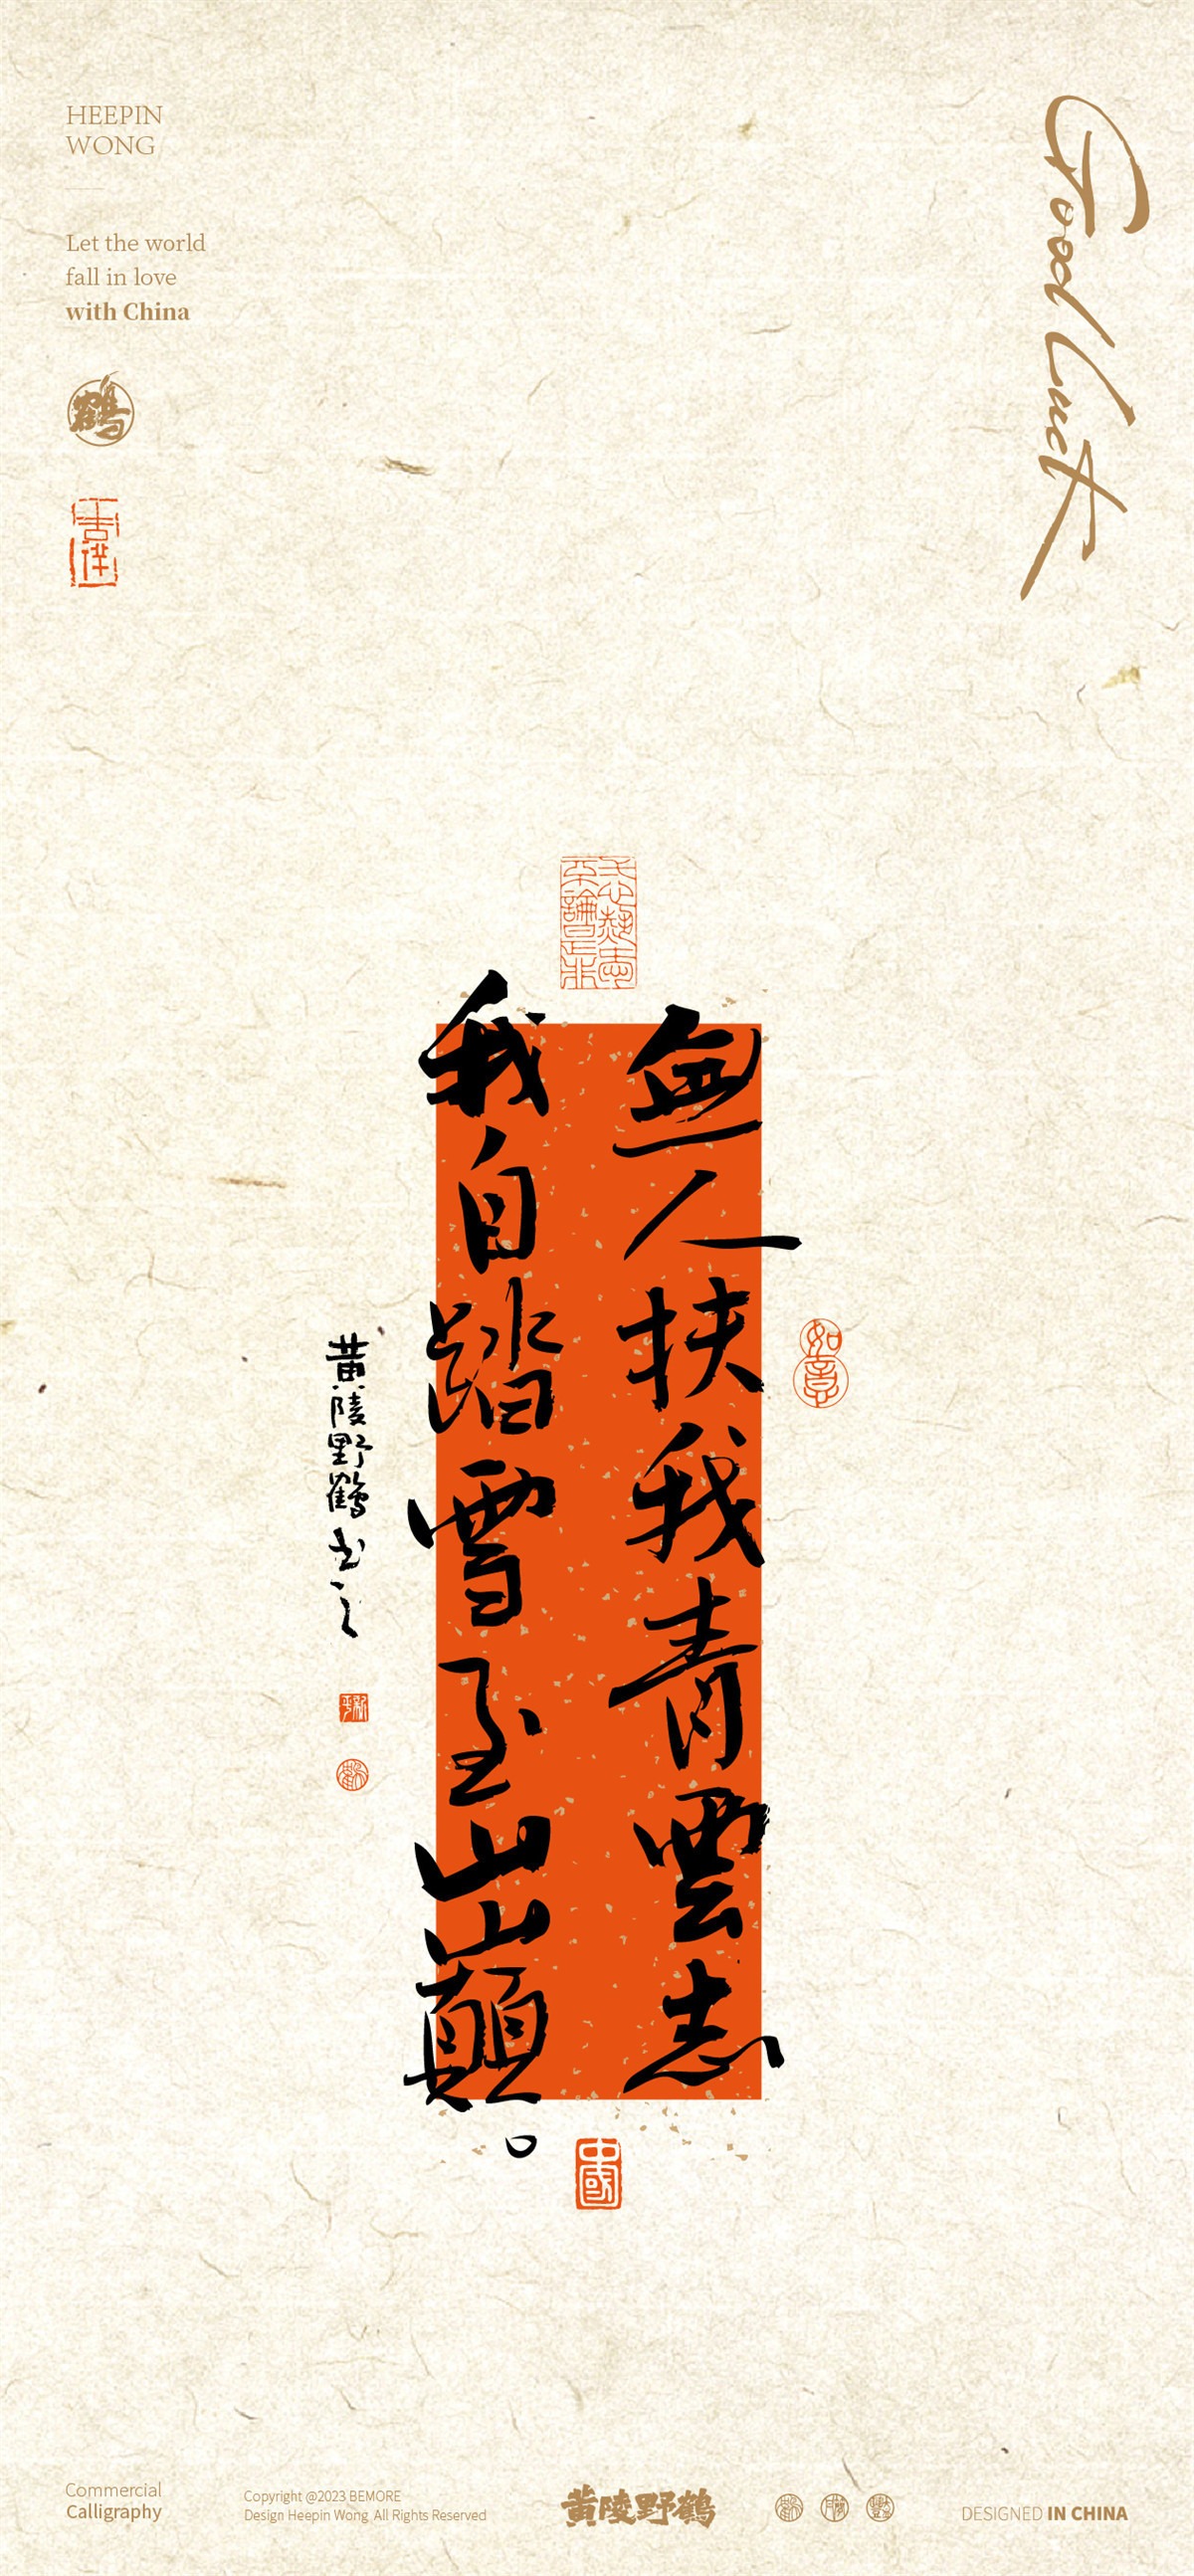 HEEPIN
WONG
Let the world
fall in love
with China
鶴
吉祥
Good luck
無人扶我青雲志
我自踏雪至山巔。
如意
黄陵野鶴书之
中國
Commercial
Calligraphy
Copyright @2023 BEMORE
Design Heepin Wong All Rights Reserved
黄陵野鶴
DESIGNED IN CHINA